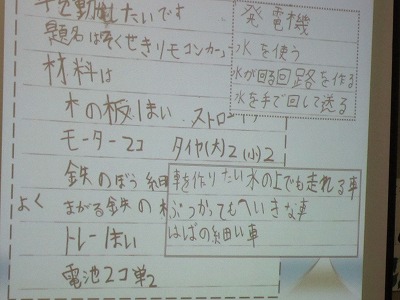 動かしたいです
題名はそくせきリモコンカー
材料は
木の板1まい ストロー
モーター2コ タイヤ(大)2(小)2
鉄のぼう 細
よく まがる鉄の
トレー1まい
電池2コ単2
発電機
水を使う
水が回る回路を作る
水を手で回して送る
車を作りたい水の上でも走れる車
ぶつかってもへいきな車
はばの細い車